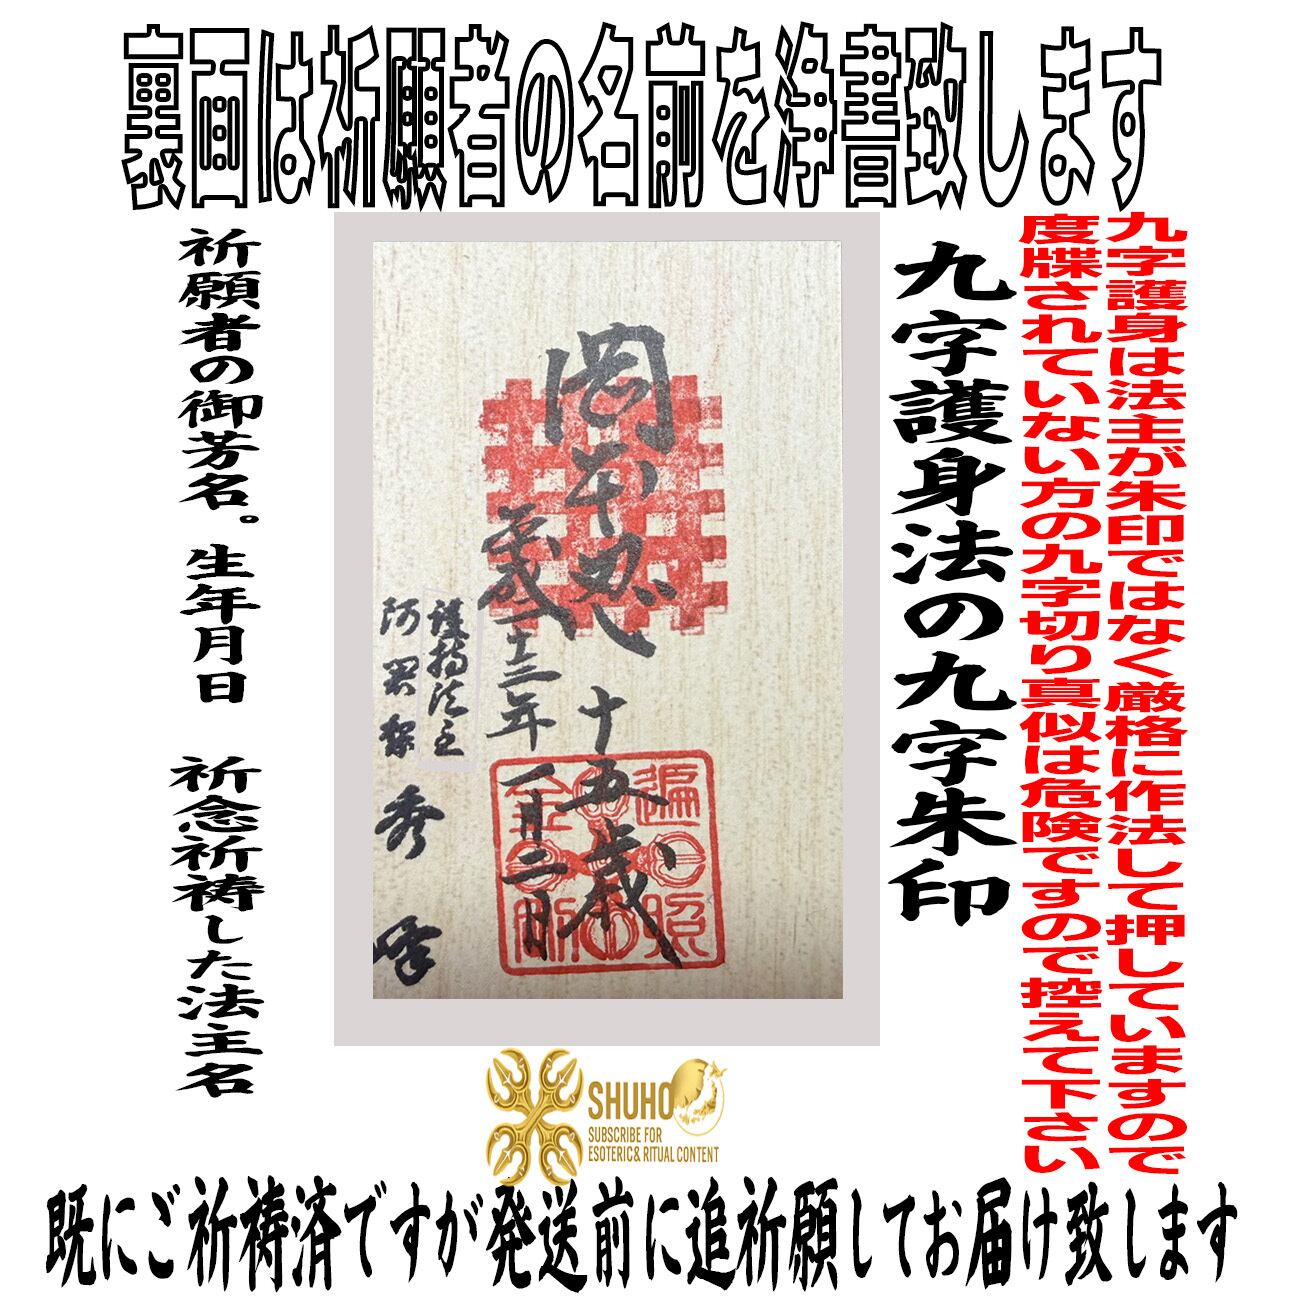 裏面は祈願者の名前を浄書致します
九字護身は法主が朱印ではなく厳格に作法して押していますので
度牒されていない方の九字切り真似は危険ですので控えて下さい
九字護身法の九字朱印
岡本忍 十五歳
平成二十三年 一月二日
護持法主
阿闍梨 秀峰
遍照金剛
祈願者の御芳名。生年月日 祈念祈祷した法主名
SHUHO
SUBSCRIBE FOR
ESOTERIC & RITUAL CONTENT
既にご祈祷済ですが発送前に追祈願してお届け致します